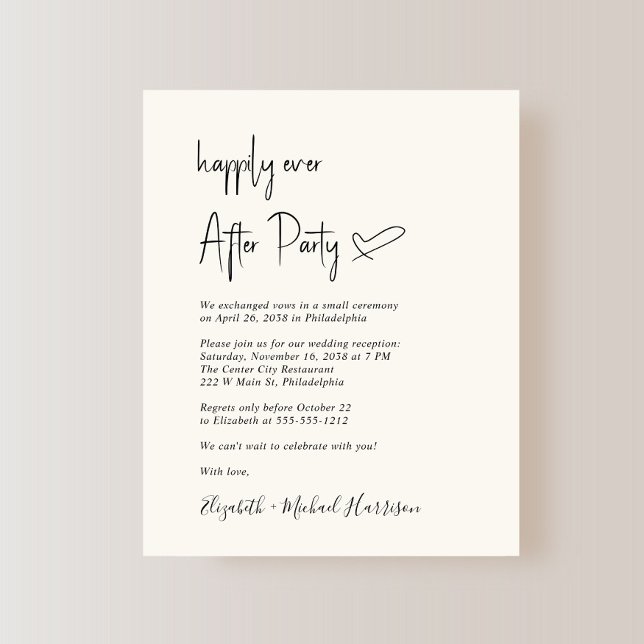 happily ever
After Party
We exchanged vows in a small ceremony
on April 26, 2038 in Philadelphia
Please join us for our wedding reception:
Saturday, November 16, 2038 at 7 PM
The Center City Restaurant
222 W Main St, Philadelphia
Regrets only before October 22
to Elizabeth at 555-555-1212
We can't wait to celebrate with you!
With love,
Elizabeth + Michael Harrison